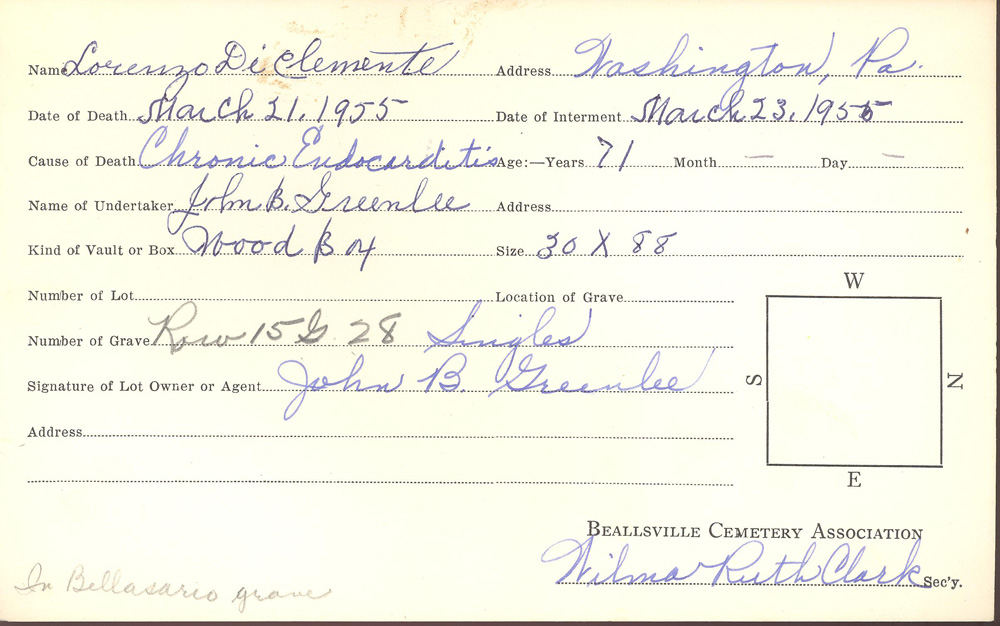 Name Lorenzo Di Clemente Address Washington, Pa.
Date of Death March 21, 1955 Date of Interment March 23, 1955
Cause of Death Chronic Endocarditis Age:—Years 71 Month — Day —
Name of Undertaker John B. Greenlee Address
Kind of Vault or Box Wood Box Size 30 X 88
Number of Lot Location of Grave
Number of Grave Row 15 G 28 Singles
Signature of Lot Owner or Agent John B. Greenlee
Address
W
S
N
E
BEALLSVILLE CEMETERY ASSOCIATION
Wilma Ruth Clark Sec'y.
In Bellasario grave